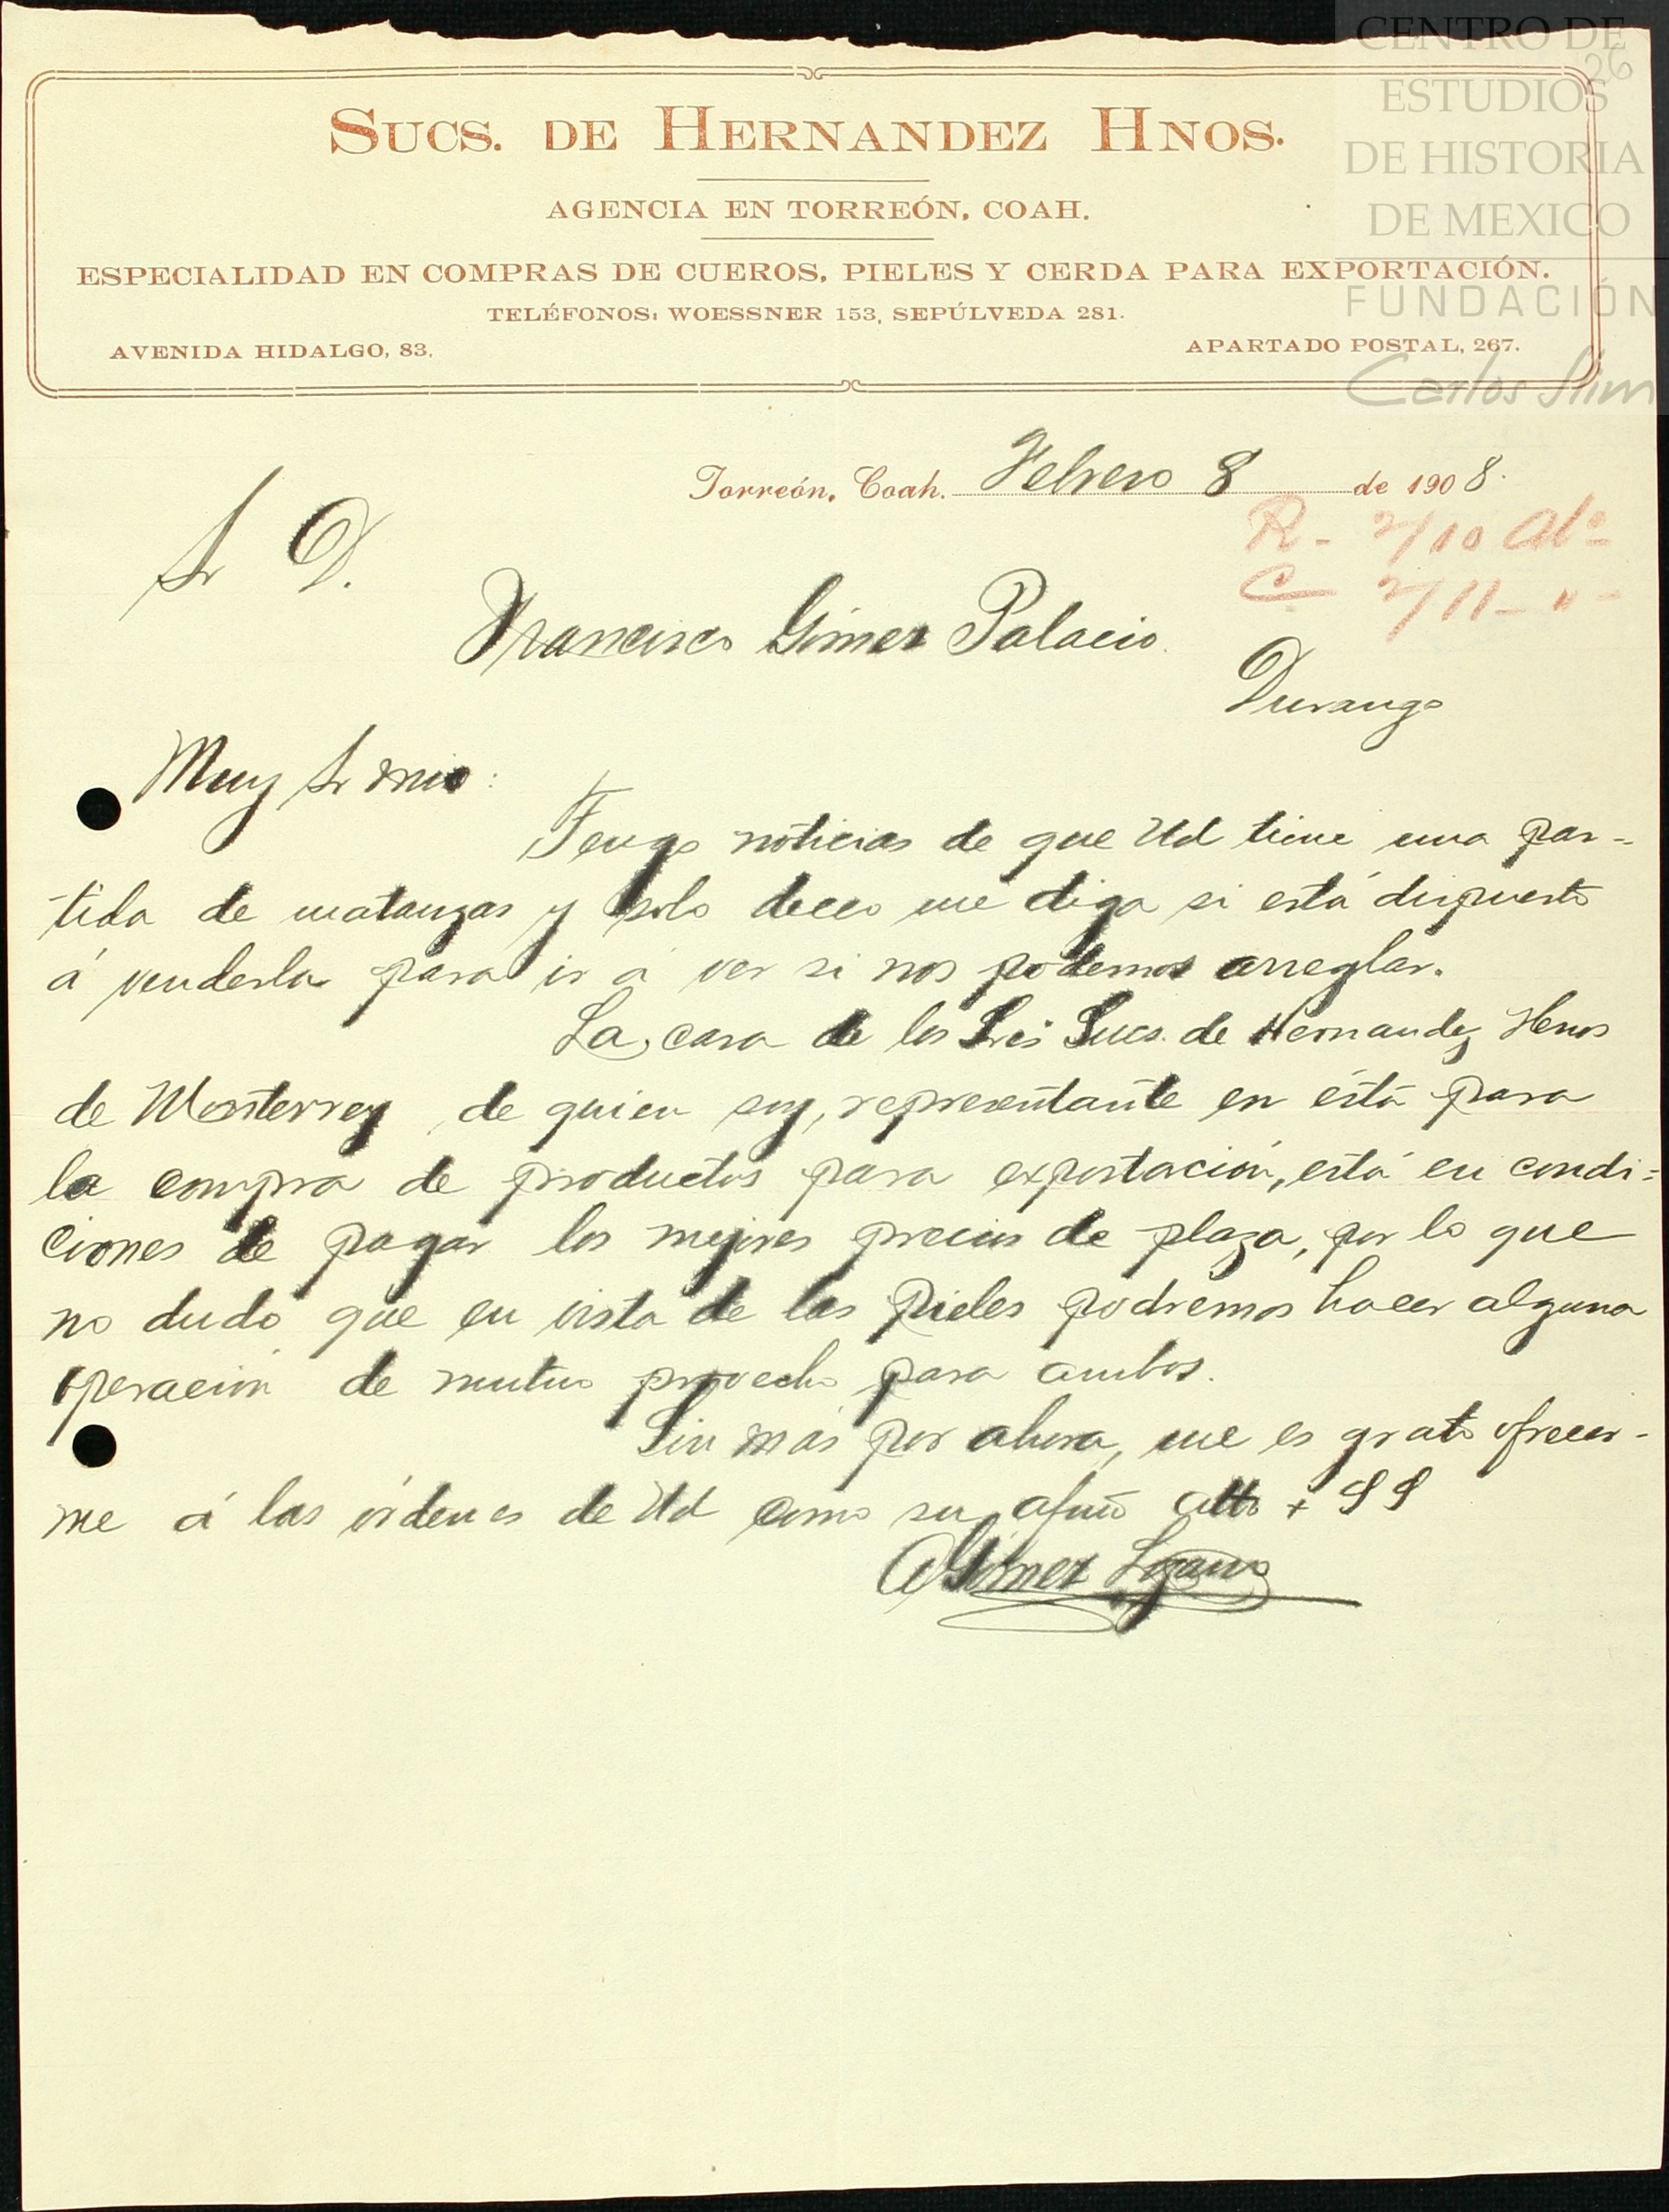 CENTRO DE
ESTUDIOS
DE HISTORIA
DE MEXICO
FUNDACIÓN
Carlos Slim
26
SUCS. DE HERNANDEZ HNOS.
AGENCIA EN TORREÓN, COAH.
ESPECIALIDAD EN COMPRAS DE CUEROS, PIELES Y CERDA PARA EXPORTACIÓN.
TELÉFONOS: WOESSNER 153, SEPÚLVEDA 281.
AVENIDA HIDALGO, 83. APARTADO POSTAL, 267.
Torreón, Coah. Febrero 8 de 1908.
R- 2/10 
C- 2/11 - " -
Sr D.
Francisco Gómez Palacio.
Durango
Muy Sr mio:
Tengo noticias de que Ud tiene una par-
tida de matanzas y solo deceo me diga si está dispuesto
á venderla para ir á ver si nos podemos arreglar.
La casa de los Sres Sucs. de Hernandez Hnos
de Monterrey de quien soy, representante en ésta para
la compra de productos para exportación, está en condi=
ciones de pagar los mejores precios de plaza, por lo que
no dudo que en vista de las pieles podremos hacer alguna
operación de mutuo provecho para ambos.
Sin más por ahora, me es grato ofrecer-
me á las órdenes de Ud como su afmo atto + SS
A Gómez Lozano